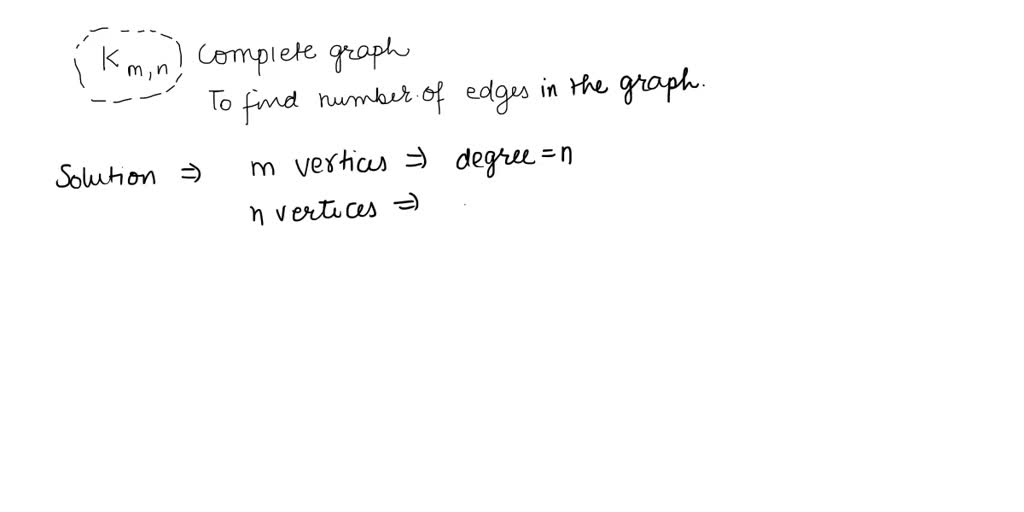 K m,n Complete graph
To find number of edges in the graph.
Solution ⇒ m vertices ⇒ degree = n
n vertices ⇒